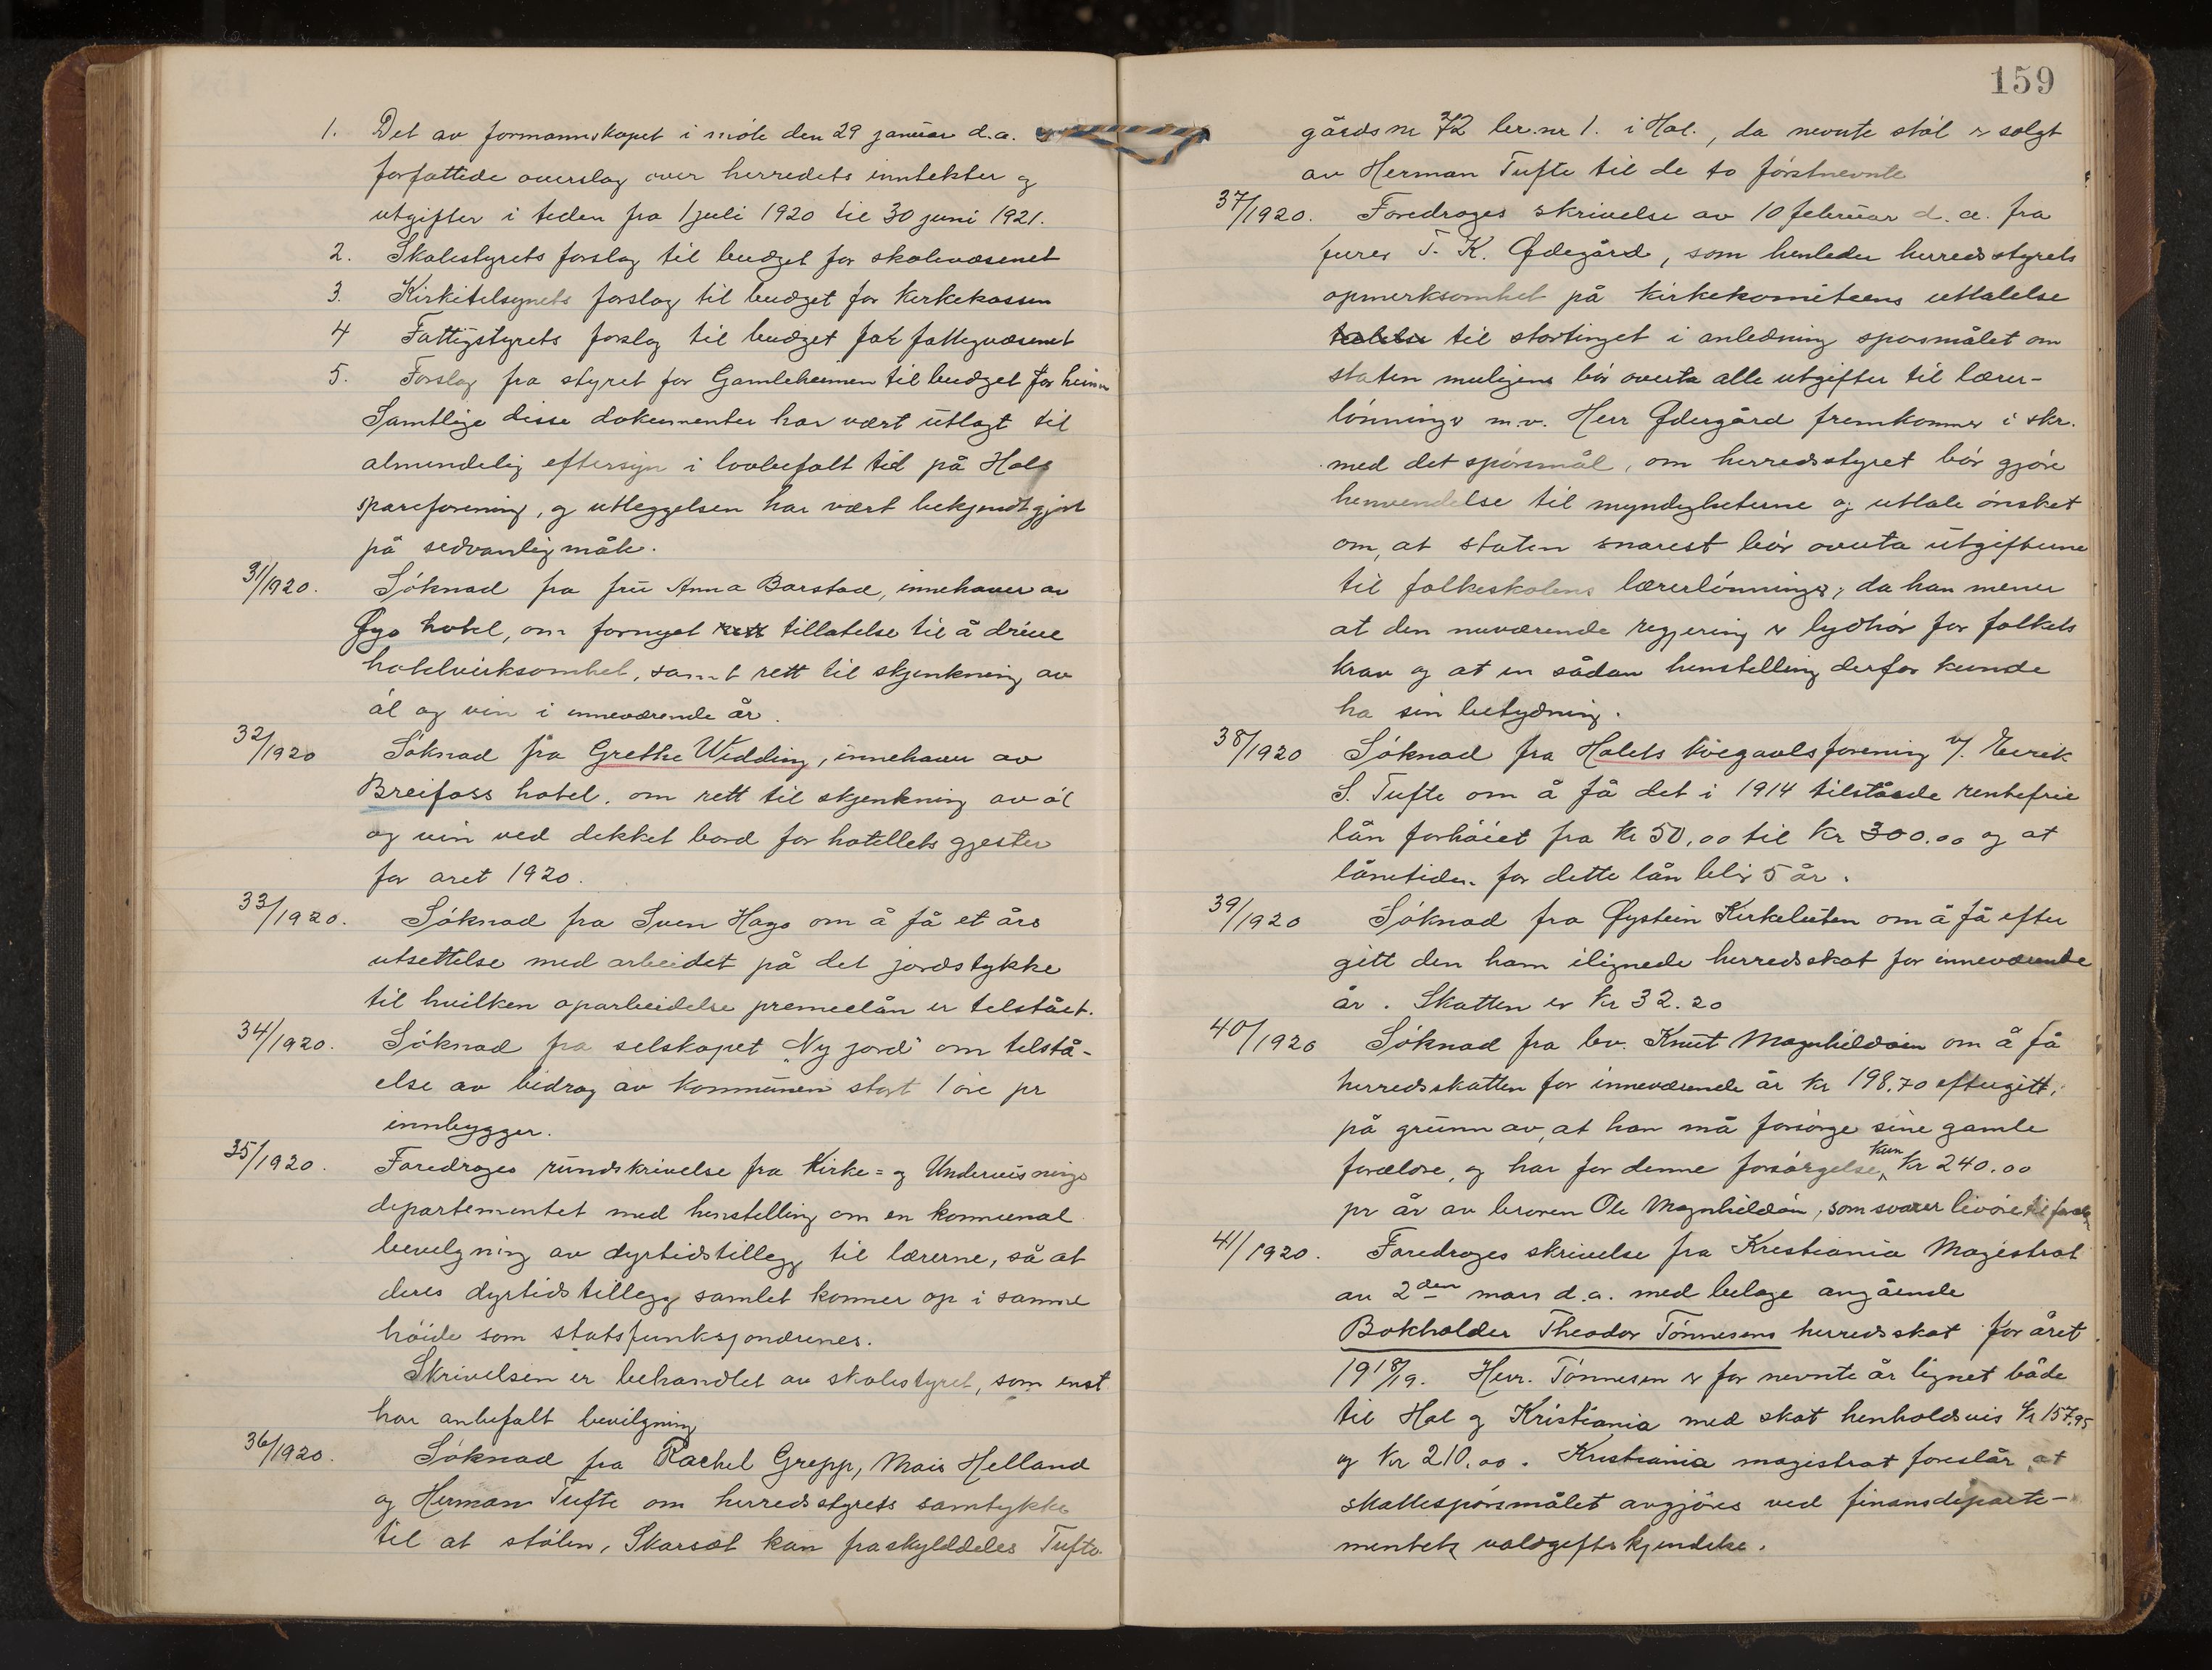 1. Det av formannskapet i møte den 29 januar d.a.
forfattede overslag over herredets inntekter og
utgifter i tiden fra 1 juli 1920 til 30 juni 1921.
2. Skolestyrets forslag til budget for skolevæsenet
3. Kirketilsynets forslag til budget for kirkekassen
4 Fattigstyrets forslag til budget for fattigvæsenet
5. Forslag fra styret for Gamleheimen til budget for heimen
Samtlige disse dokumenter har vært utlagt til
almindelig eftersyn i lovbefalt tid på Hols
spareforening, og utleggelsen har vært bekjendtgjort
på sedvanlig måte.
31/1920. Søknad fra fru Anna Barstad, innehaver av
Gyo hotel, om fornyet tillatelse til å drive
hotelvirksomhet, samt rett til skjenkning av
øl og vin i inneværende år.
32/1920 Søknad fra Grethe Widding, innehaver av
Breifoss hotel, om rett til skjenkning av øl
og vin ved dekket bord for hotellets gjester
for aret 1920.
33/1920. Søknad fra Sven Hago om å få et års
utsettelse med arbeidet på det jordstykke
til hvilken oparbeidelse premielån er tilstået.
34/1920. Søknad fra selskapet "Ny jord" om tilstå-
else av bidrag av kommunen stort 1 øre pr
innbygger.
35/1920. Foredroges rundskrivelse fra Kirke= og Undervisnings
departementet med henstilling om en kommunal
bevilgning av dyrtidstillegg til lærerne, så at
deres dyrtidstillegg samlet kommer op i samme
høide som statsfunksjonærenes.
Skrivelsen er behandlet av skolestyret, som enst
har anbefalt bevilgning
36/1920. Søknad fra Rachel Grepp, Mais Helland
og Herman Tufte om herredsstyrets samtykke
til at stølen, Skarsøt kan fraskylddeles Tufte
159
gårds nr 72 br.nr 1. i Hol., da nevnte støl er solgt
av Herman Tufte til de to førstnevnte
37/1920. Foredroges skrivelse av 10 februar d.a. fra
furer T. K. Ødegård, som henleder herredsstyrets
opmerksomhet på kirkekomiteens uttalelse
til stortinget i anledning spørsmålet om
staten muligens bør overta alle utgifter til lærer-
lønninger m.v. Herr Ødegård fremkommer i skr.
med det spørsmål, om herredsstyret bør gjøre
henvendelse til myndigheterne og uttale ønsket
om, at staten snarest bør overta utgifterne
til folkeskolens lærerlønninger, da han mener
at den nuværende regjering er lydhør for folkets
krav og at en sådan henstilling derfor kunde
ha sin betydning.
38/1920 Søknad fra Holets kvegavlsforening v/. Eirik
S. Tufte om å få det i 1914 tilståede rentefrie
lån forhøiet fra kr 50,00 til kr 300.00 og at
lånetiden for dette lån blir 5 år.
39/1920 Søknad fra Øystein Kirkeluten om å få efter
gitt den ham ilignede herredsskat for inneværende
år. Skatten er kr 32.20
40/1920 Søknad fra bv. Knut Magnhildøin om å få
herredsskatten for inneværende år kr 198.70 eftergitt,
på grunn av, at han må forsørge sine gamle
forældre, og har for denne forsørgelse kun kr 240.00
pr år av broren Ole Magnhildøin, som svarer livøre til
41/1920. Foredroges skrivelse fra Kristiania Magistrat
av 2den mars d.a. med belage angående
Bokholder Theodor Tønnesens herredsskat for året
1918/19. Herr. Tønnesen er for nevnte år lignet både
til Hol og Kristiania med skat henholdsvis kr 157,95
og kr 210.00. Kristiania magistrat foreslår, at
skattespørsmålet avgjøres ved finansdeparte-
mentets voldgiftskjendelse.